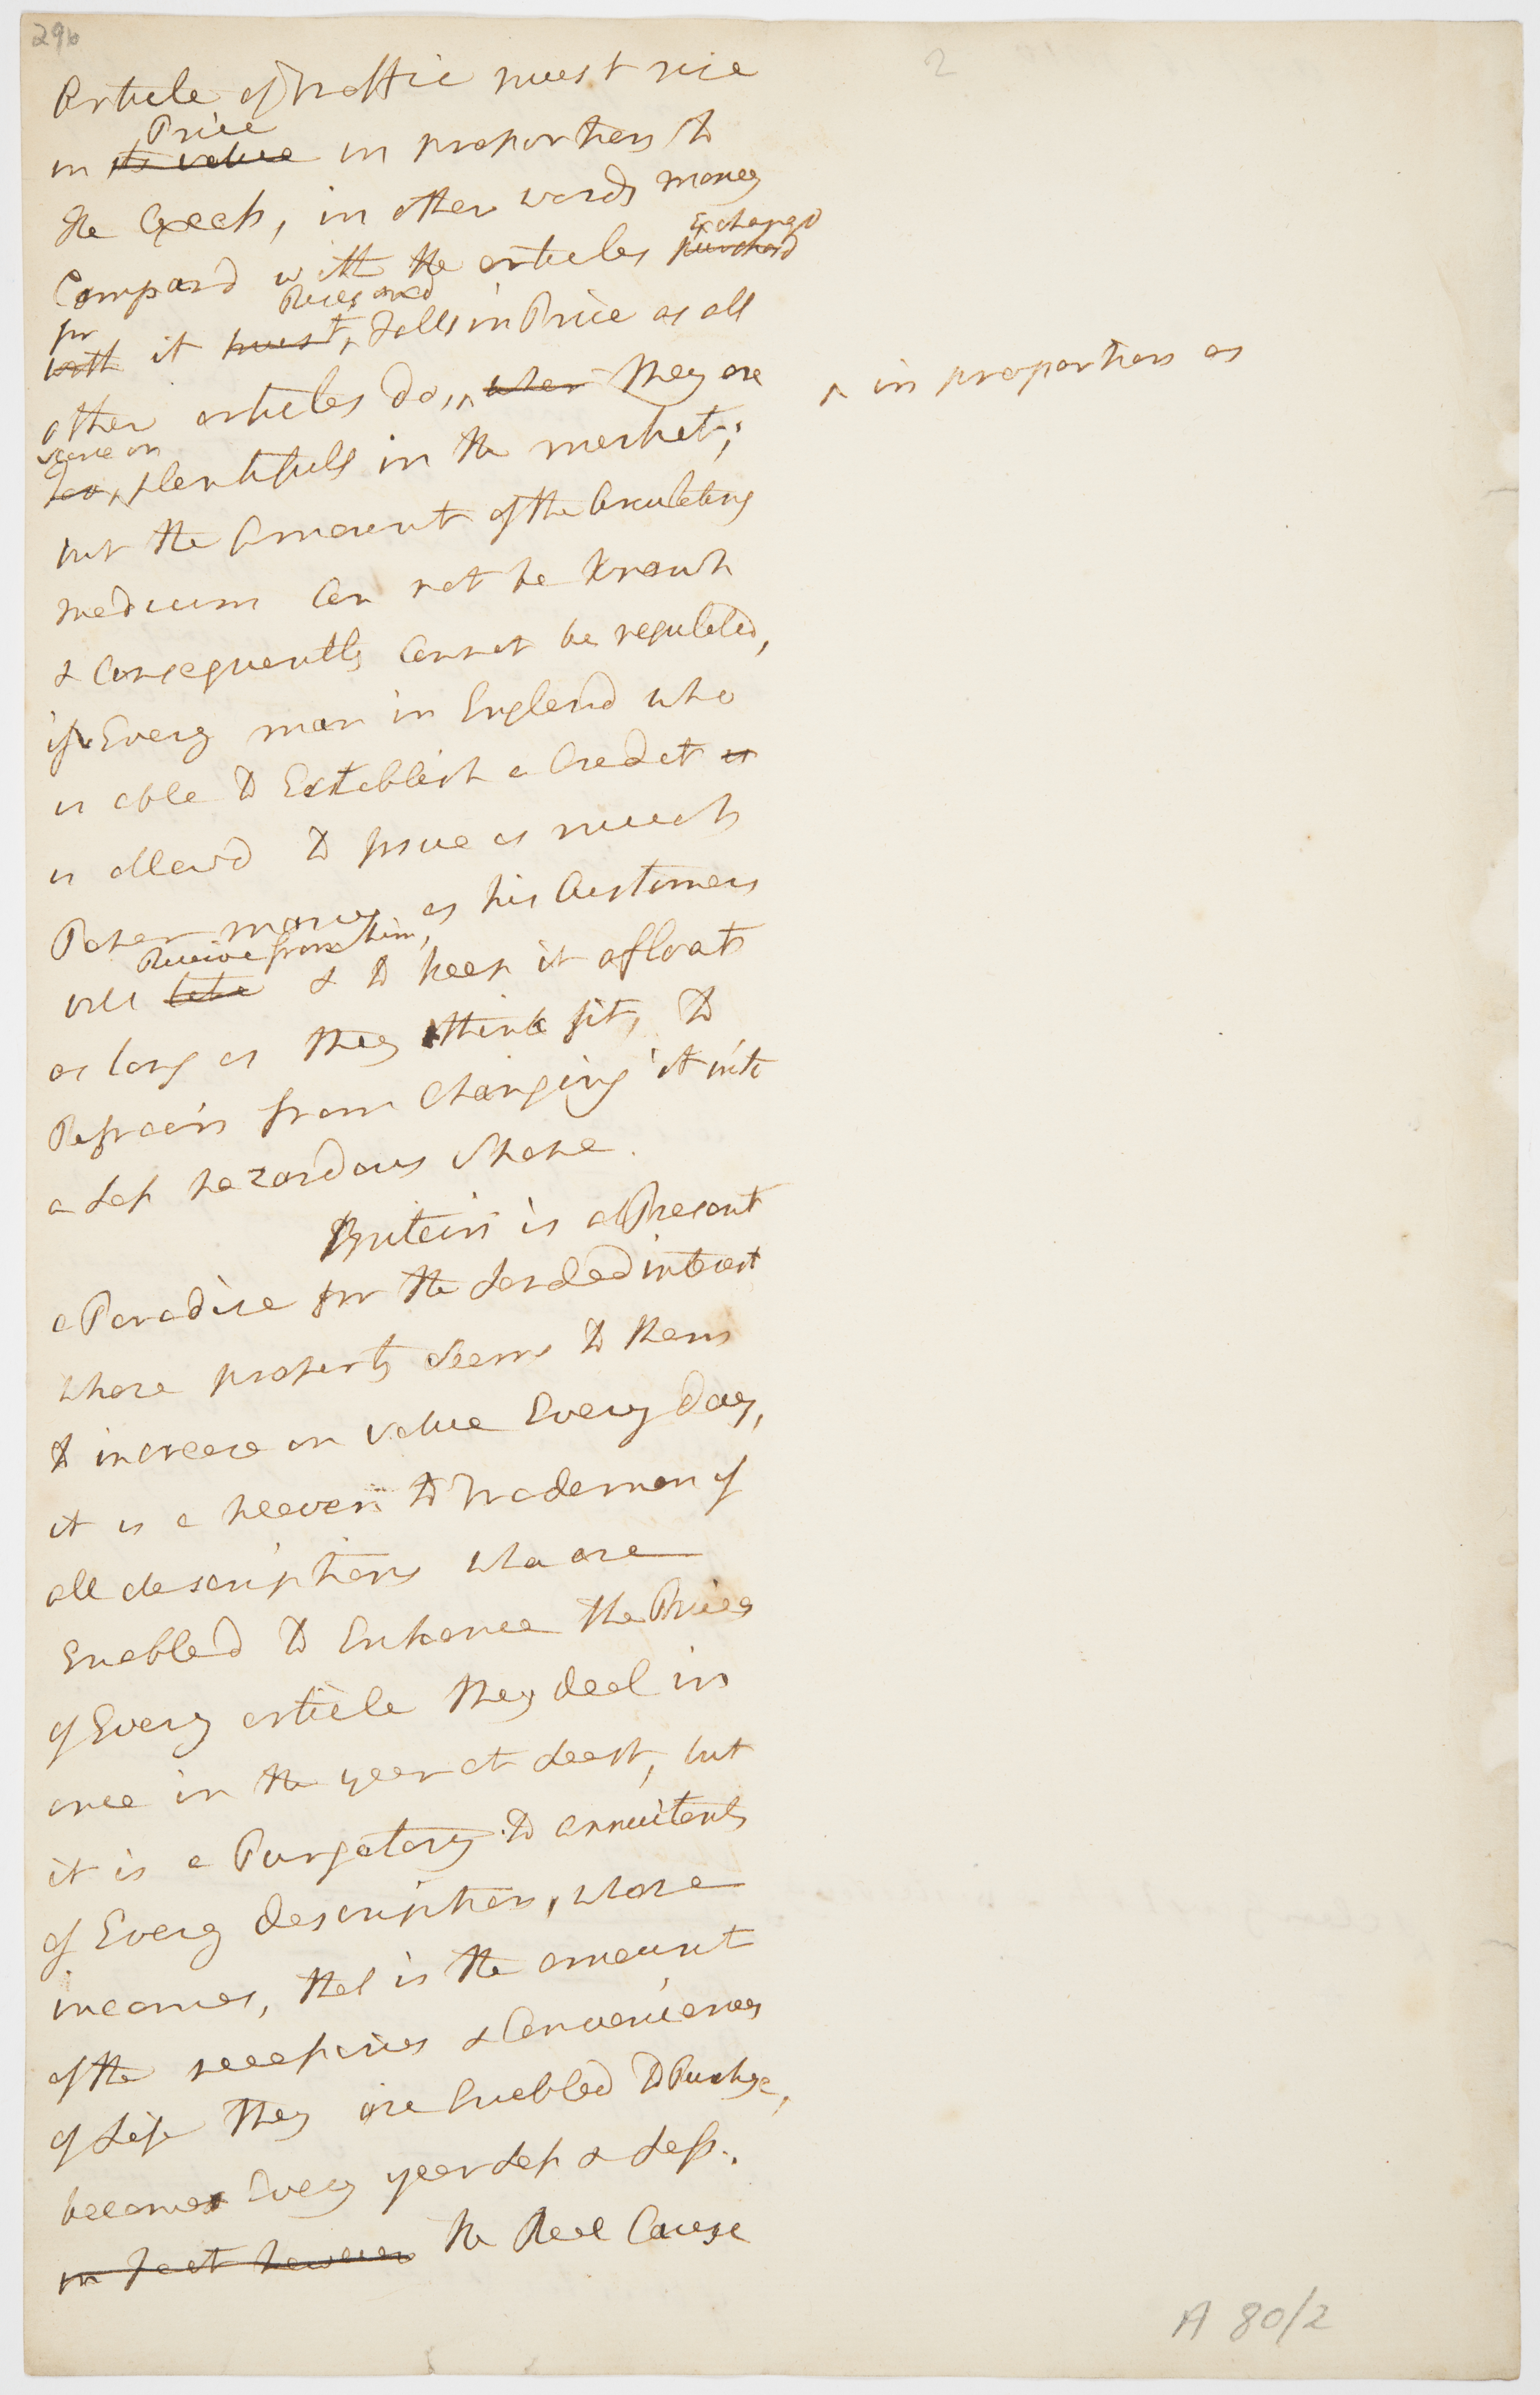 296
2
Article of traffic must rise
Price
in its value in proportion to
the Excess, in other words money
Exchangd
Compard with the articles purchasd
Rises and
for
with it must, falls in Price as all
other articles do, ^ when they are ^ in proportion as
scarce or
too, plentifull in the market;
but the Amount of the Circulating
medium Can not be known
& Consequently Cannot be regulated,
if Every man in England who
is able to Establish a Credit is
is allowd to issue as much
Paper money as his Customers
Receive from him,
will take & to keep it afloat
as long as they think fit, to
Refrain from Changing it into
a Less hazardous Shape.
Britain is at Present
a Paradise for the Landed interest
whose property Seems to them
to increase in value Every day,
it is a heaven to Tradesmen of
all descriptions who are
Enabled to Enhance the Prices
of Every article they deal in
once in the year at Least, but
it is a Purgatory to annuitants
of Every description, whose
incomes, that is the amount
of the necessaries & Conveniences
of Life they are Enabled to Purchase,
becomes Every year Less & Less.
in fact however the Real Cause
A 80/2